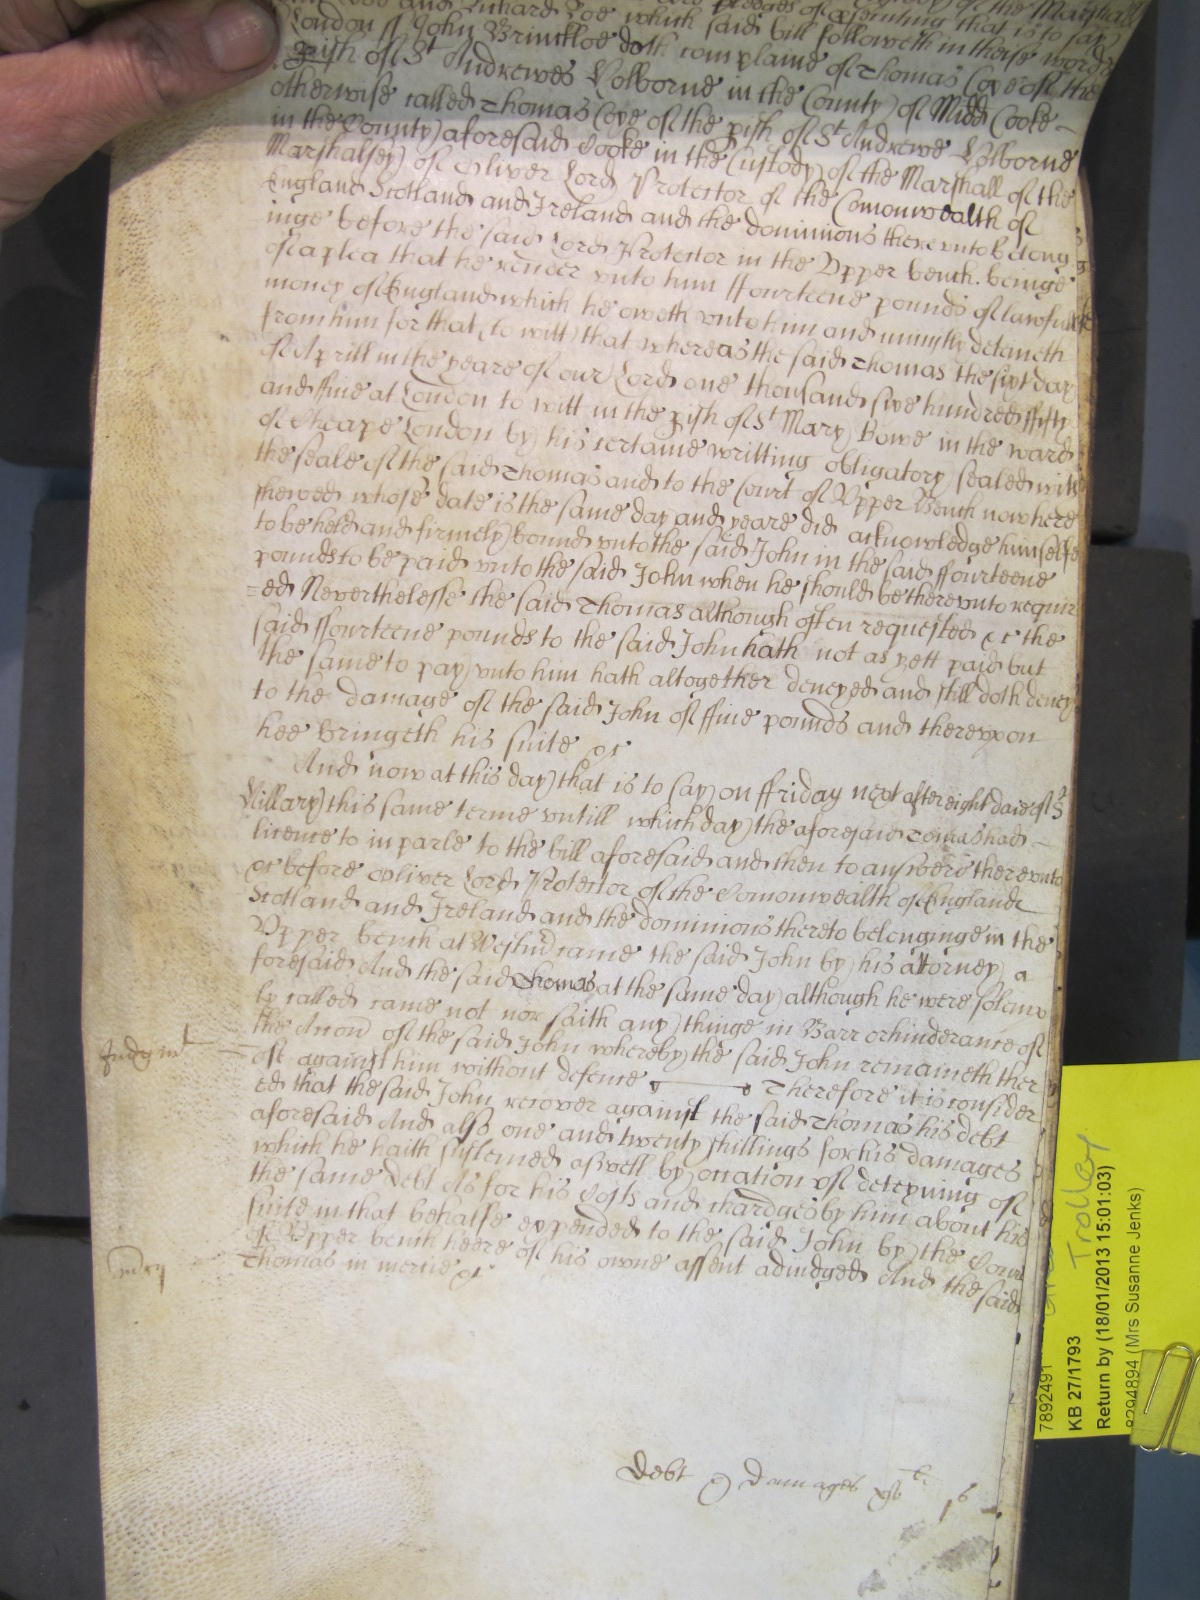 Doe and Richard Roe which said bill followeth in theise words
that is to say
London ss John Brinckloe doth complaine of Thomas Cope of the
pish of St Andrewes Holborne in the County of Midd Cooke
otherwise called Thomas Cope of the pish of St Andrewe Holborne
in the County aforesaid Cooke in the Custody of the Marshall of the
Marshalsey of Oliver Lord Protector of the Comonwealth of
England Scotland and Ireland and the dominions therevnto belong
inge before the said Lord Protector in the Vpper bench beinge
of a plea that he render vnto him ffourteene pounds of lawfull
money of England which he oweth vnto him and iniustly detaineth
from him for that (to witt) that whereas the said Thomas the sixt day
of Aprill in the yeare of our Lord one thousand sixe hundred ffifty
and ffiue at London to witt in the pish of St Mary Bowe in the ward
of Cheape London by his certaine writting obligatory sealed with
the seale of the said Thomas and to the Court of Vpper Bench now here
shewed whose date is the same day and yeare did acknowledge himselfe
to be held and firmely bound vnto the said John in the said ffourteene
pounds to be paid vnto the said John when he should be therevnto requir
=ed Neverthelesse the said Thomas although often requested &c the
said ffourteene pounds to the said John hath not as yett paid but
the same to pay vnto him hath altogether denyed and still doth deney
to the damage of the said John of ffiue pounds and therevpon
hee bringeth his suite &c
And now at this day that is to say on ffriday next after eight daies of St
Hillary this same terme vntill which day the aforesaid Tomas had
licence to inparle to the bill aforesaid and then to answere therevnto
&c before Oliver Lord Protector of the Comonwealth of England
Scotland and Ireland and the dominions thereto belonginge in the
Vpper bench at Westmr came the said John by his attorney a
foresaid And the said Thomas at the same day although he were solemn
ly called came not nor saith any thinge in Barr or hinderance of
the Accon of the said John whereby the said John remaineth ther
Judgmt
of against him without defence Therefore it is consider
ed that the said John recover against the said Thomas his debt
aforesaid And also one and twenty shillings for his damages
which he haith susteined aswell by occation of deteyning of
the same debt As for his Costs and chardges by him about his
suite in that behalfe expended to the said John by the Court
of Vpper bench heere of his owne assent adiudged And the said
mcy
Thomas in mercie &c
Debt & Damages xvli is
7892491
Trolley
KB 27/1793
Return by (18/01/2013 15:01:03)
8294894 (Mrs Susanne Jenks)